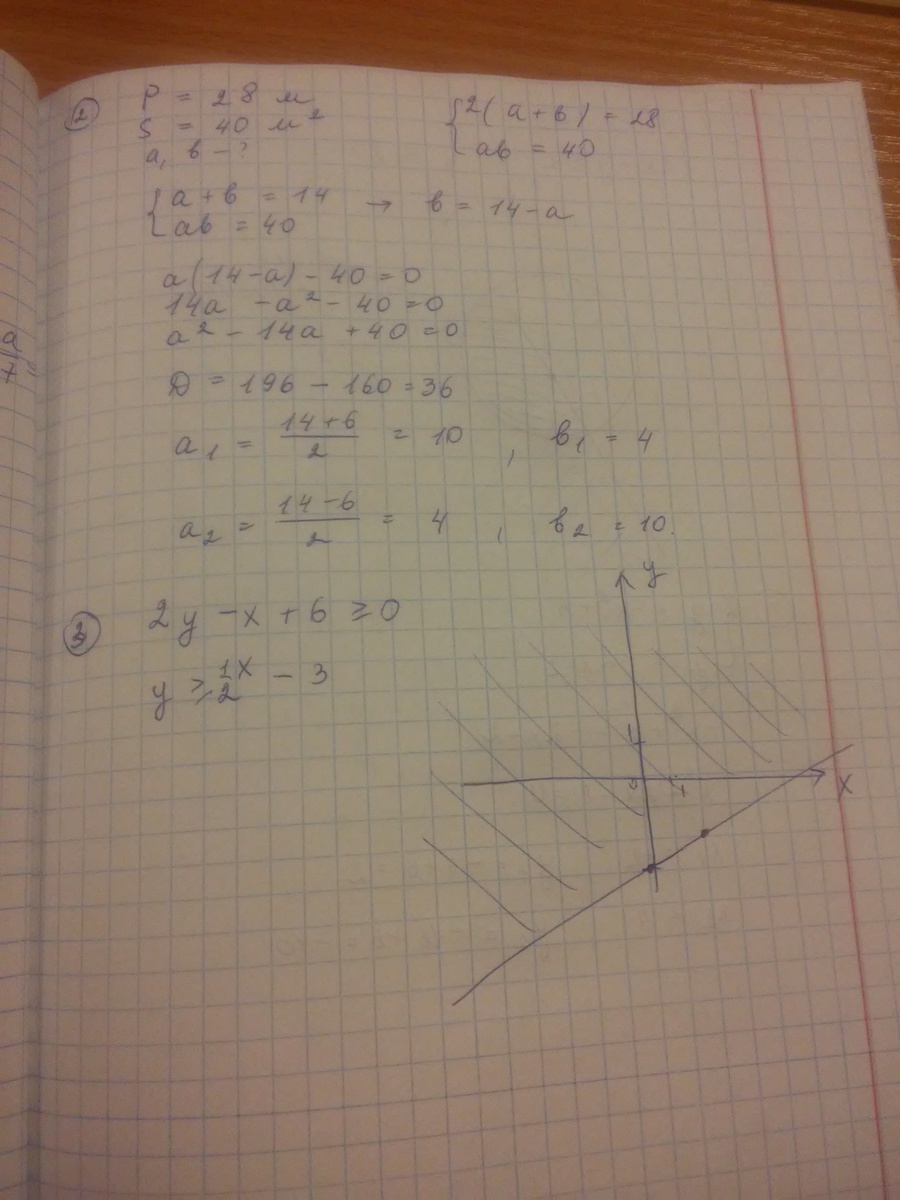 2
P = 28 м
S = 40 м²
a, b - ?
{ 2(a+b) = 28
ab = 40
{ a + b = 14 → b = 14-a
ab = 40
a(14-a) - 40 = 0
14a - a² - 40 = 0
a² - 14a + 40 = 0
D = 196 - 160 = 36
a₁ = (14+6)/2 = 10, b₁ = 4
a₂ = (14-6)/2 = 4, b₂ = 10.
3
2y - x + 6 ≥ 0
y ≥ 1/2 x - 3
y
1
0
1
x
a
7 =